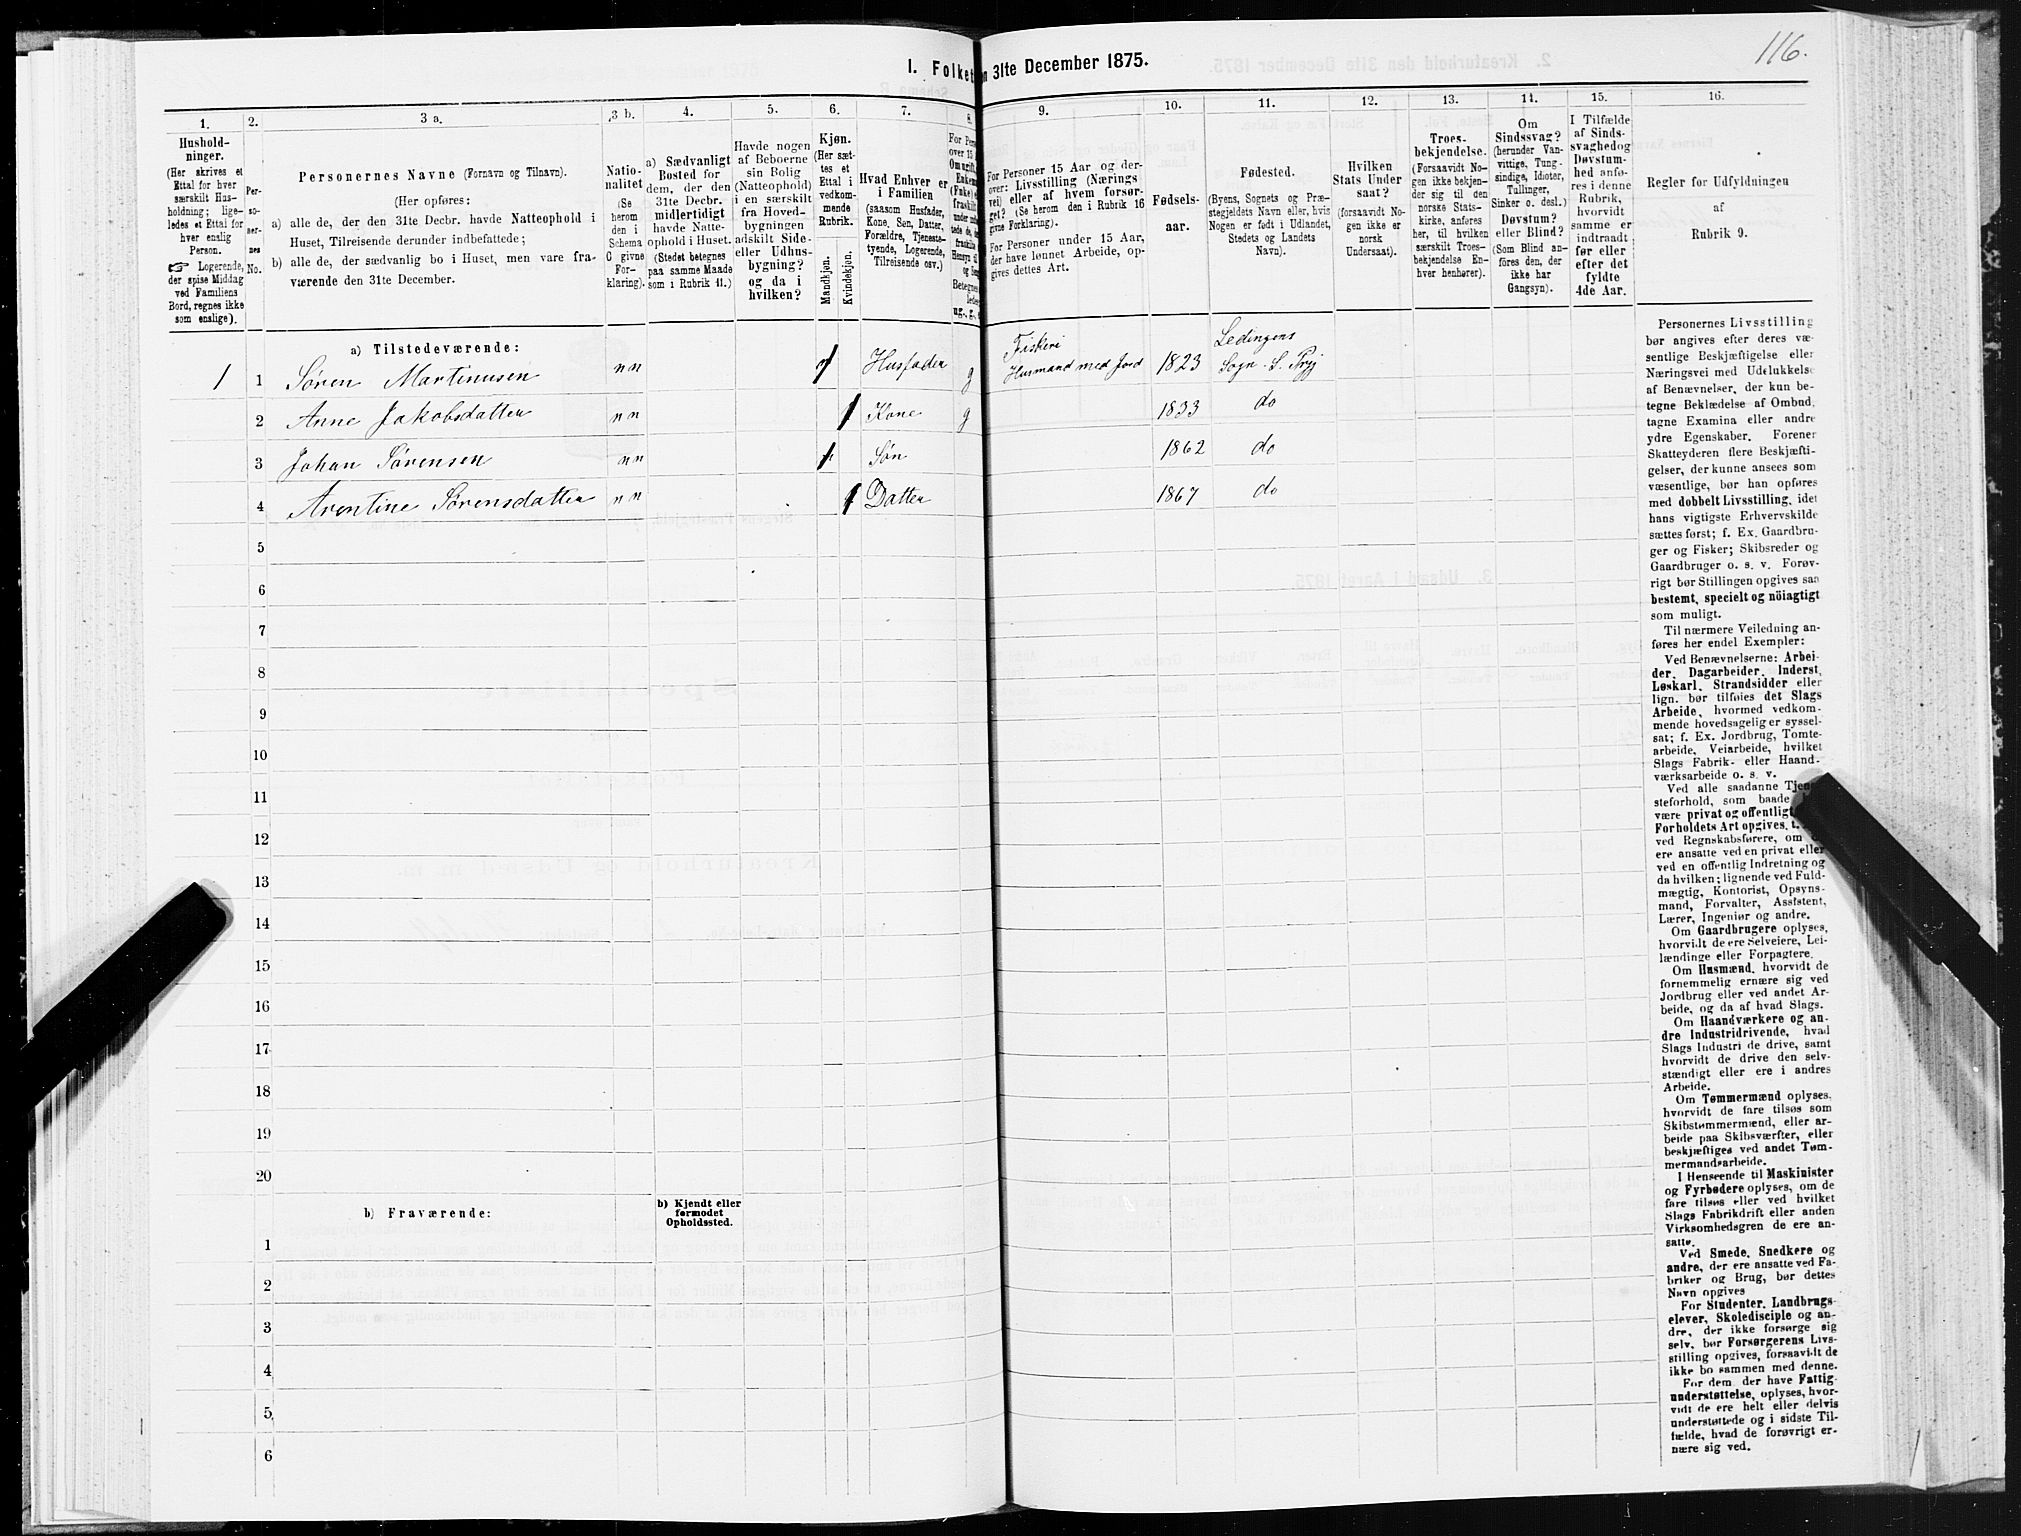 116.
I. Folket
n 31te December 1875.
1.
2.
3 a.
3 b.
4.
5.
6.
7.
8.
9.
10.
11.
12.
13.
14.
15.
16.
Hushold-
ninger.
(Her skrives et
Ettal for hver
særskilt Hus-
holdning; lige-
ledes et Ettal for
hver enslig
Person.
☞ Logerende,
der spise Middag
ved Familiens
Bord, regnes ikke
som enslige).
Per-
so-
ner-
nes
No.
Personernes Navne (Fornavn og Tilnavn).
(Her opføres:
a) alle de, der den 31te Decbr. havde Natteophold i
Huset, Tilreisende derunder indbefattede;
b) alle de, der sædvanlig bo i Huset, men vare fra-
værende den 31te December.
Natio-
nalitet
(Se
herom
den i
Schema
C givne
For-
klaring).
a) Sædvanligt
Bosted for
dem, der den
31te Decbr.
midlertidigt
havde Natte-
ophold i Huset.
(Stedet betegnes
paa samme Maade
som i Rubrik 11.)
Havde nogen
af Beboerne
sin Bolig
(Natteophold)
i en særskilt
fra Hoved-
bygningen
adskilt Side-
eller Udhus-
bygning?
og da i
hvilken?
Kjøn.
(Her sæt-
tes et
Ettal i
vedkom-
mende
Rubrik.
Mandkjøn.
Kvindekjøn.
Hvad Enhver er
i Familien
(saasom Husfader,
Kone, Søn, Datter,
Forældre, Tjeneste-
tyende, Logerende,
Tilreisende osv.)
For Pers
over 15
Om ugift,
Enkem
(Fnke)
fraskilt
ug., g.,
For Personer 15 Aar og der-
over: Livsstilling (Nærings
vei) eller af hvem forsør-
get? (Se herom den i Rubrik 16
givne Forklaring).
For Personer under 15 Aar,
der have lønnet Arbeide, op-
gives dettes Art.
Fødsels-
aar.
Fødested.
(Byens, Sognets og Præ-
stegjeldets Navn eller, hvis
Nogen er født i Udlandet,
Stedets og Landets
Navn).
Hvilken
Stats Under
saat?
(forsaavidt No-
gen ikke er
norsk
Undersaat).
Troes-
bekjendelse.
(Forsaavidt No-
gen ikke bekjen-
der sig til den
norske Stats-
kirke, anføres
her, til hvilken
særskilt Troes-
bekjendelse En-
hver henhører).
Om
Sindssvag?
(herunder Van-
vittige, Tung-
sindige, Idioter,
Tullinger,
Sinker o. desl.)
Døvstum?
eller Blind?
(Som Blind an-
føres den, der
ikke har
Gangsyn).
I Tilfælde
af Sinds-
svaghed og
Døvstum-
hed anfø-
res i denne
Rubrik,
hvorvidt
samme er
indtraadt
før eller
efter det
fyldte
4de Aar.
Regler for Udfyldningen
af
Rubrik 9.
a) Tilstedeværende:
1 1 Søren Martinusen nn 1 Husfader g Fiskeri Husmand med Jord 1823 Ledingens Sogn. S. Prgj
2 Anne Jakobsdatter nn 1 Kone g 1833 do
3 Johan Sørensen nn 1 Søn 1862 do
4 Arentine Sørensdatter nn 1 Datter 1867 do
5
6
7
8
9
10
11
12
13
14
15
16
17
18
19
20
b) Fraværende:
b) Kjendt eller
formodet
Opholdssted.
1
2
3
4
5
6
Personernes Livsstilling
bør angives efter deres væ-
sentlige Beskjæftigelse eller
Næringsvei med Udelukkelse
af Benævnelser, der kun be-
tegne Beklædelse af Ombud,
tagne Examina eller andre
ydre Egenskaber. Forener
Skatteyderen flere Beskjæfti-
gelser, der kunne ansees som
væsentlige, bør han opføres
med dobbelt Livsstilling, idet
hans vigtigste Erhvervskilde
sættes først; f. Ex. Gaardbru-
ger og Fisker; Skibsreder og
Gaardbruger o. s. v. Forøv-
rigt bør Stillingen opgives saa
bestemt, specielt og nöiagtigt
som muligt.
Til nærmere Veiledning an-
føres her endel Exempler:
Ved Benævnelserne: Arbei-
der, Dagarbeider, Inderst,
Løskarl, Strandsidder eller
lign. bør tilføies det Slags
Arbeide, hvormed vedkom-
mende hovedsagelig er syssel-
sat; f. Ex. Jordbrug, Tomte-
arbeide, Veiarbeide, hvilket
Slags Fabrik- eller Haand-
værksarbeide o. s. v.
Ved alle saadanne Tjene-
steforhold, som baade
være privat og offentligt,
Forholdets Art opgives, t.
ved Regnskabsførere, om
ere ansatte ved en privat eller
ved en offentlig Indretning og
da hvilken; lignende ved Fuld-
mægtig, Kontorist, Opsyns-
mand, Forvalter, Assistent,
Lærer, Ingeniør og andre.
Om Gaardbrugere oplyses,
hvorvidt de ere Selveiere, Lei-
lændinge eller Forpagtere.
Om Husmænd, hvorvidt de
fornemmelig ernære sig ved
Jordbrug eller ved andet Ar-
beide, og da af hvad Slags.
Om Haandværkere og an-
dre Industridrivende, hvad
Slags Industri de drive, samt
hvorvidt de drive den selv-
stændigt eller ere i andres
Arbeide.
Om Tømmermænd oplyses,
hvorvidt de fare tilsøs som
Skibstømmermænd, eller ar-
beide paa Skibsværfter, eller
beskjæftiges ved andet Tøm-
mermandsarbeide.
I Henseende til Maskinister
og Fyrbødere oplyses, om de
fare tilsøs eller ved hvilket
Slags Fabrikdrift eller anden
Virksomhedsgren de ere an-
satte.
Ved Smede, Snedkere og
andre, der ere ansatte ved Fa-
briker og Brug, bør dettes
Navn opgives
For Studenter, Landbrugs-
elever, Skoledisciple og an-
dre, der ikke forsørge sig
selv, bør Forsørgerens Livs-
stilling opgives, forsaavidt de
ikke bo sammen med denne.
For dem, der have Fattig-
understøttelse, oplyses, hvor-
vidt de ere helt eller delvis
understøttede og i sidste Til-
fælde, hvad de forøvrigt er-
nære sig ved.